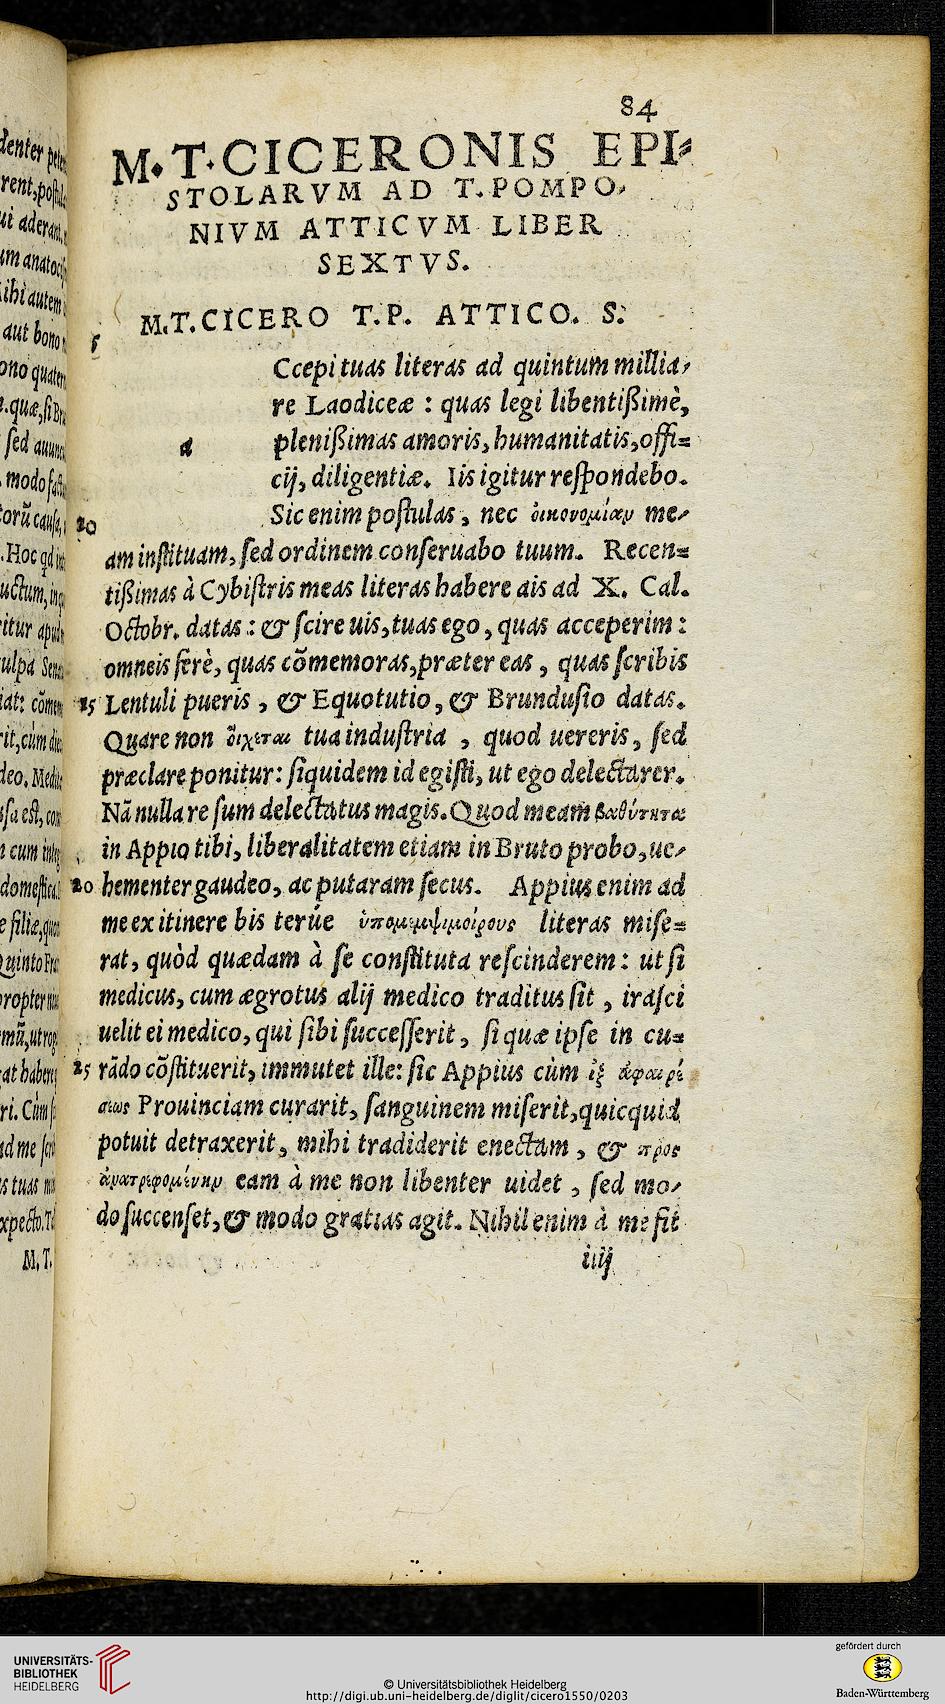 84
M. T. CICERONIS EPI-
STOLARVM AD T. POMPO-
NIVM ATTICVM LIBER
SEXTVS.
M. T. CICERO T. P. ATTICO. S.
5
Ccepi tuas literas ad quintum millia-
re Laodiceæ : quas legi libentißimè,
a plenißimas amoris, humanitatis, offi-
cij, diligentiæ. Iis igitur respondebo.
Sic enim postulas, nec οἰκονομίαν me-
10
am instituam, sed ordinem conseruabo tuum. Recen-
tißimas à Cybistris meas literas habere ais ad X. Cal.
Octobr. datas : & scire uis, tuas ego, quas acceperim :
omneis ferè, quas cōmemoras, præter eas, quas scribis
15 Lentuli pueris, & Equotutio, & Brundusio datas.
Quare non οἴχεται tua industria, quod uereris, sed
præclare ponitur: siquidem id egisti, ut ego delectarer.
Nā nulla re sum delectatus magis. Quod meam βαθύτητα
in Appio tibi, liberalitatem etiam in Bruto probo, ue-
20 hementer gaudeo, ac putaram secus. Appius enim ad
me ex itinere bis terúe ὑπομεμψιμοίρους literas mise-
rat, quòd quædam à se constituta rescinderem: ut si
medicus, cum ægrotus alij medico traditus sit, irasci
uelit ei medico, qui sibi successerit, si quæ ipse in cu-
25 rādo cōstituerit, immutet ille: sic Appius cùm ἐξ ἀφαιρέ
σεως Prouinciam curarit, sanguinem miserit, quicquid
potuit detraxerit, mihi tradiderit enectam, & προς
ἀνατρεφομένην eam à me non libenter uidet, sed mo-
do succenset, & modo gratias agit. Nihil enim à me fit
iiij
M. T.
UNIVERSITÄTS-
BIBLIOTHEK
HEIDELBERG
© Universitätsbibliothek Heidelberg
http://digi.ub.uni-heidelberg.de/diglit/cicero1550/0203
gefördert durch
Baden-Württemberg